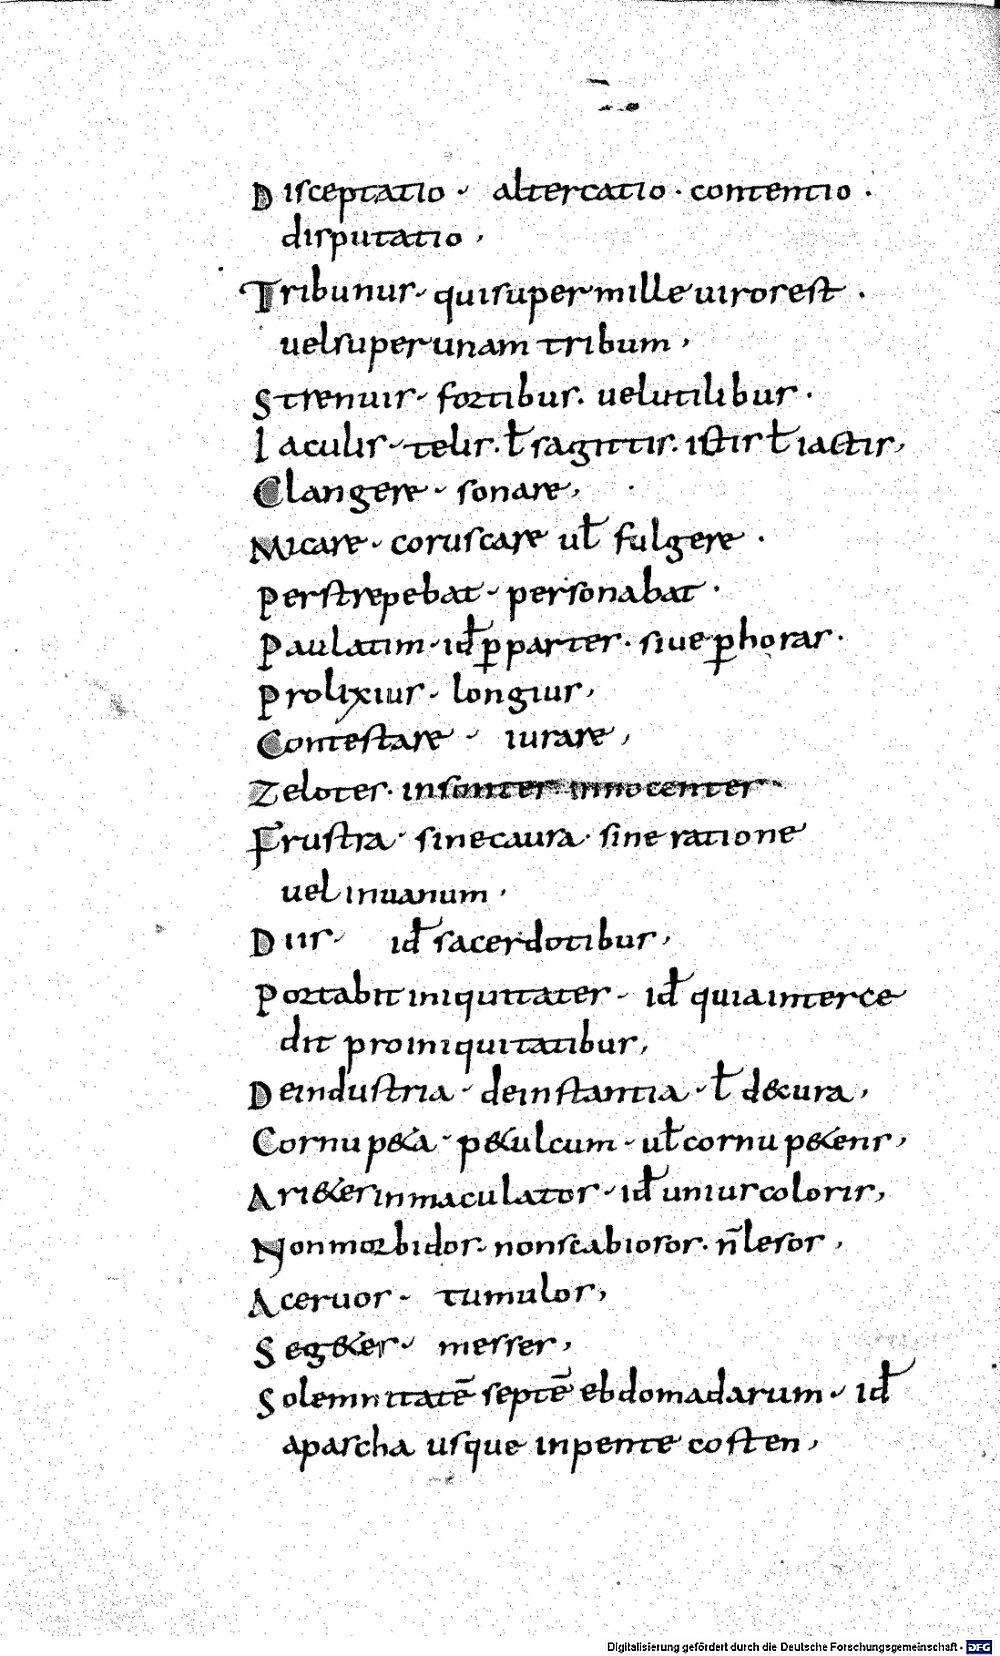 Disceptatio · altercatio · contentio ·
disputatio ,
Tribunus · qui super mille uiros est ·
uel super unam tribum ,
Strenuis · fortibus · uel utilibus ·
Iaculis · telis · ł sagittis · ictis ł iactis ,
Clangere · sonare ,
Micare · coruscare uł fulgere ·
Perstrepebat · personabat ·
Paulatim · id̄ ꝑ partes · siue ꝑ horas ·
Prolixius · longius ,
Contestare · iurare ,
Zelotes · insontes innocentes ·
Frustra · sine causa · sine ratione
uel inuanum ·
Diis · id̄ sacerdotibus ,
Portabit iniquitates · id̄ quia interce
dit pro iniquitatibus ,
De industria · de instantia · ł de cura ,
Cornu p&a · p&ulcum · uł cornu p&ens ,
Ari&es inmaculatos · id̄ unius coloris ,
Non morbidos · non scabiosos · n̄ lesos ,
Aceruos · tumulos ,
Seg&es · messes ,
Solemnitatē septē ebdomadarum · id̄
a pascha usque in pente costen ,
Digitalisierung gefördert durch die Deutsche Forschungsgemeinschaft - DFG